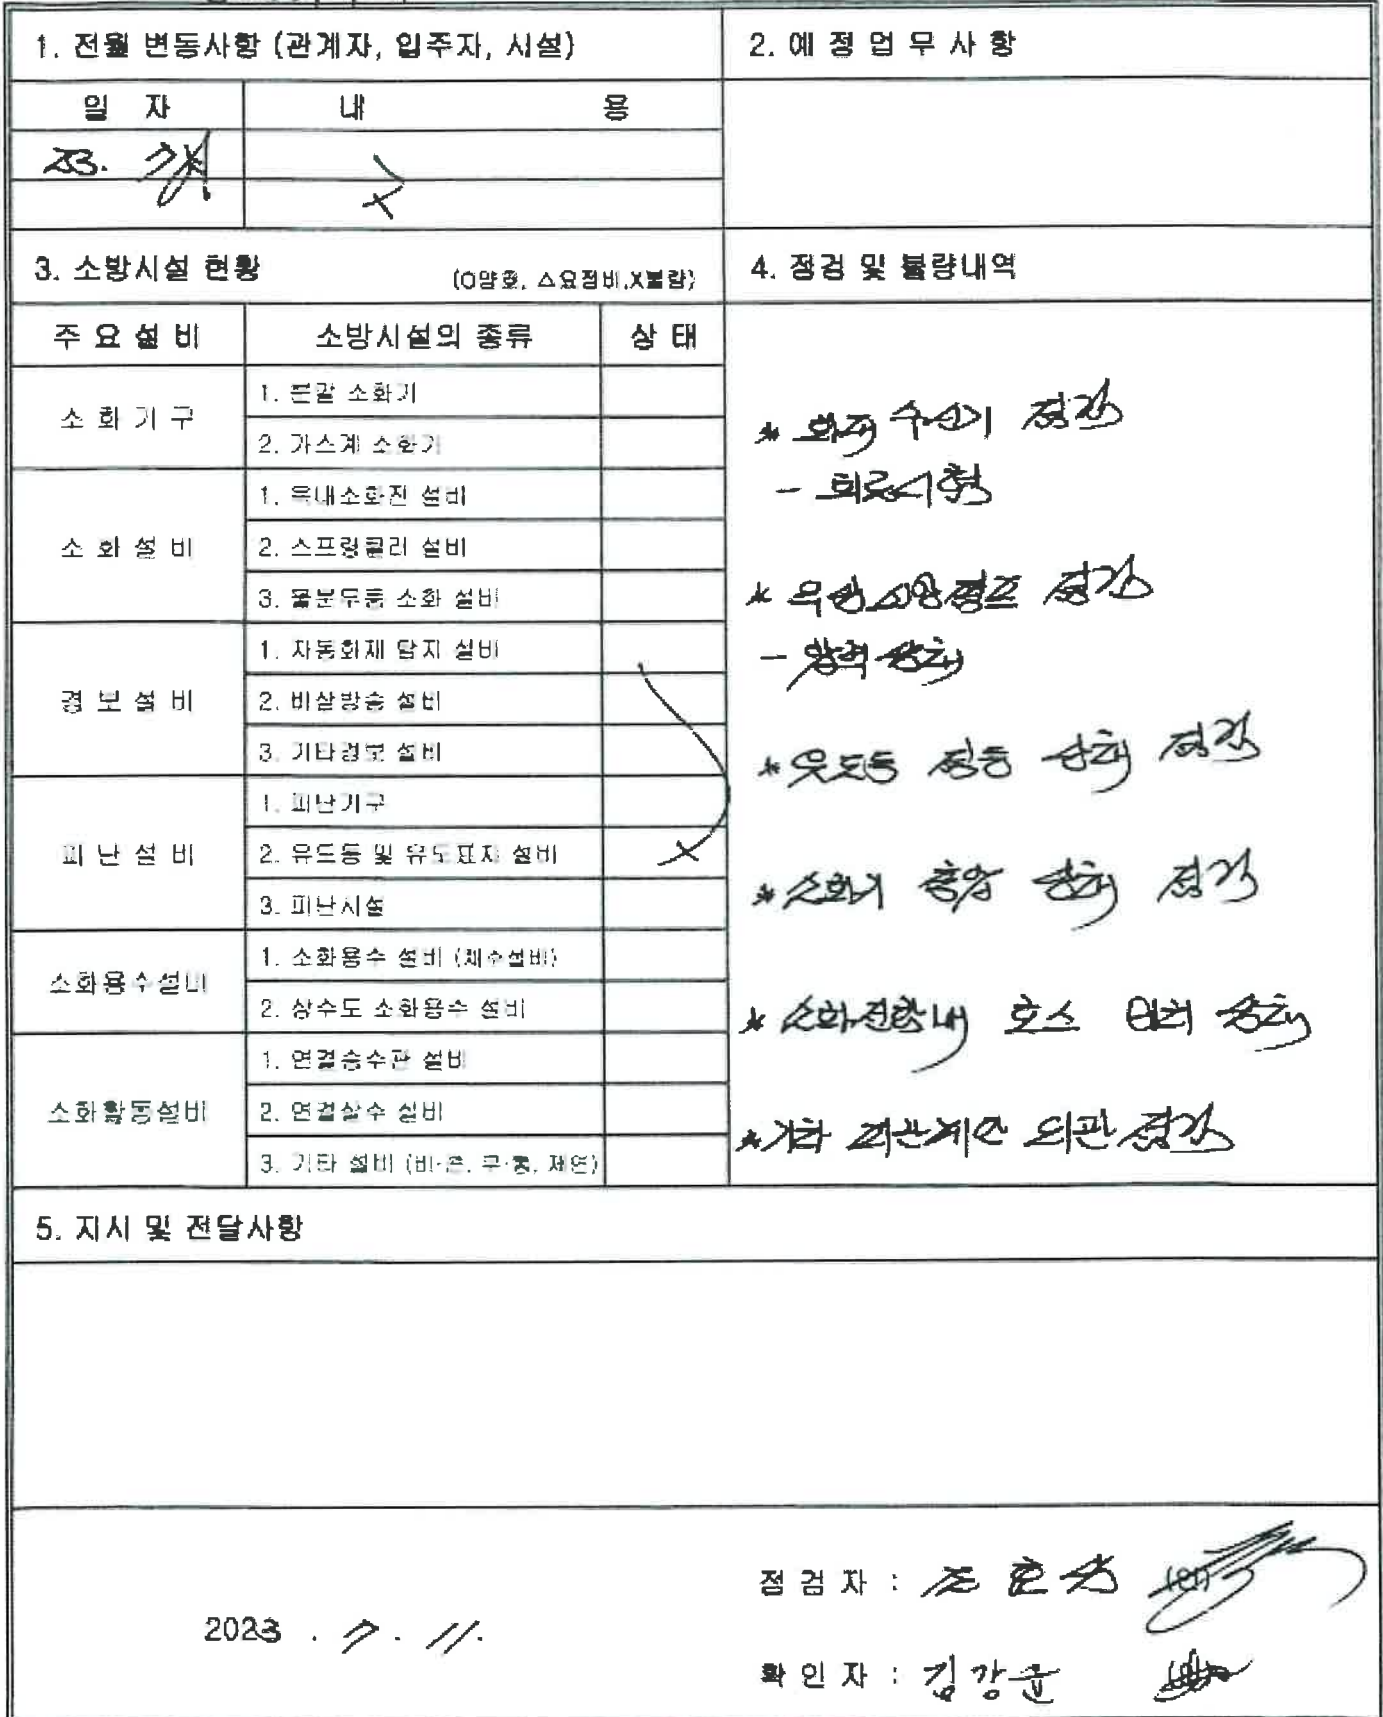 1. 전월 변동사항 (관계자, 입주자, 시설)
2. 예 정 업 무 사 항
일 자
내 용
23. 7월
3. 소방시설 현황
(O양호, △요정비,X불량)
4. 점검 및 불량내역
주 요 설 비
소방시설의 종류
상 태
소 화 기 구
1. 분말 소화기
2. 가스계 소화기
소 화 설 비
1. 옥내소화전 설비
2. 스프링클러 설비
3. 물분무등 소화 설비
경 보 설 비
1. 자동화재 탐지 설비
2. 비상방송 설비
3. 기타경보 설비
피 난 설 비
1. 피난기구
2. 유도등 및 유도표지 설비
3. 피난시설
소화용수설비
1. 소화용수 설비 (채수설비)
2. 상수도 소화용수 설비
소화활동설비
1. 연결송수관 설비
2. 연결살수 설비
3. 기타 설비 (비·콘, 무·통, 제연)
* 화재 수신기 점검
- 회로시험
* 점검
- 압력 상태
* 유도등 점등 상태 점검
* 소화기 충압 상태 점검
* 소화전함내 호스 상태
* 기타 외관 점검
5. 지시 및 전달사항
2023 . 7 . 11.
점 검 자 : (인)
확 인 자 : 김강윤